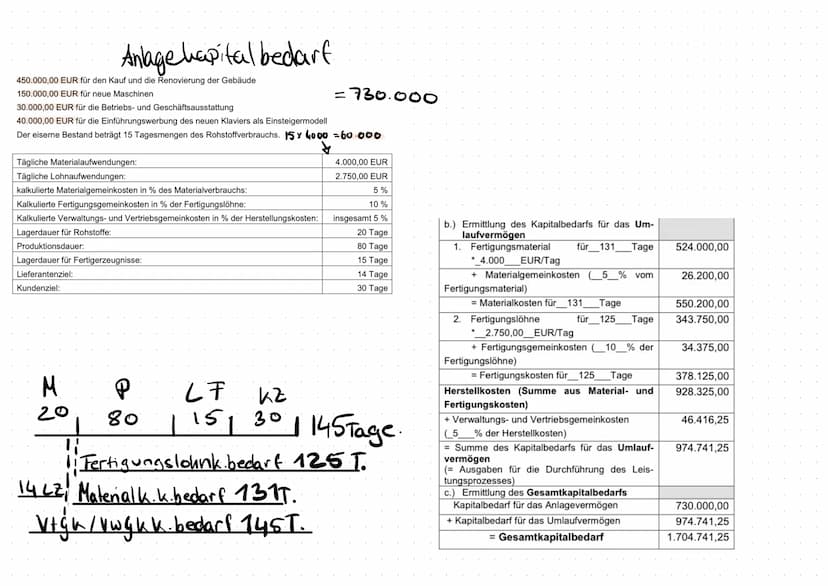 Anlagekapitalbedarf
450.000,00 EUR für den Kauf und die Renovierung der Gebäude
150.000,00 EUR für neue Maschinen
= 730.000
30.000,00 EUR für die Betriebs- und Geschäftsausstattung
40.000,00 EUR für die Einführungswerbung des neuen Klaviers als Einsteigermodell
Der eiserne Bestand beträgt 15 Tagesmengen des Rohstoffverbrauchs. 15 x 4000 = 60.000
Tägliche Materialaufwendungen: 4.000,00 EUR
Tägliche Lohnaufwendungen: 2.750,00 EUR
kalkulierte Materialgemeinkosten in % des Materialverbrauchs: 5 %
Kalkulierte Fertigungsgemeinkosten in % der Fertigungslöhne: 10 %
Kalkulierte Verwaltungs- und Vertriebsgemeinkosten in % der Herstellungskosten: insgesamt 5 %
Lagerdauer für Rohstoffe: 20 Tage
Produktionsdauer: 80 Tage
Lagerdauer für Fertigerzeugnisse: 15 Tage
Lieferantenziel: 14 Tage
Kundenziel: 30 Tage
M P LF KZ
20 80 15 30 145 Tage.
Fertigungslohnk.bedarf 125 T.
14 LZ Materialk.k.bedarf 131 T.
VtGK/VwGK K.bedarf 145 T.
b.) Ermittlung des Kapitalbedarfs für das Um-
laufvermögen
1. Fertigungsmaterial für__131___Tage 524.000,00
*_4.000___EUR/Tag
+ Materialgemeinkosten (__5__% vom 26.200,00
Fertigungsmaterial)
= Materialkosten für__131___Tage 550.200,00
2. Fertigungslöhne für__125___Tage 343.750,00
*__2.750,00__EUR/Tag
+ Fertigungsgemeinkosten (__10__% der 34.375,00
Fertigungslöhne)
= Fertigungskosten für__125___Tage 378.125,00
Herstellkosten (Summe aus Material- und 928.325,00
Fertigungskosten)
+ Verwaltungs- und Vertriebsgemeinkosten 46.416,25
(_5___% der Herstellkosten)
= Summe des Kapitalbedarfs für das Umlauf- 974.741,25
vermögen
(= Ausgaben für die Durchführung des Leis-
tungsprozesses)
c.) Ermittlung des Gesamtkapitalbedarfs
Kapitalbedarf für das Anlagevermögen 730.000,00
+ Kapitalbedarf für das Umlaufvermögen 974.741,25
= Gesamtkapitalbedarf 1.704.741,25